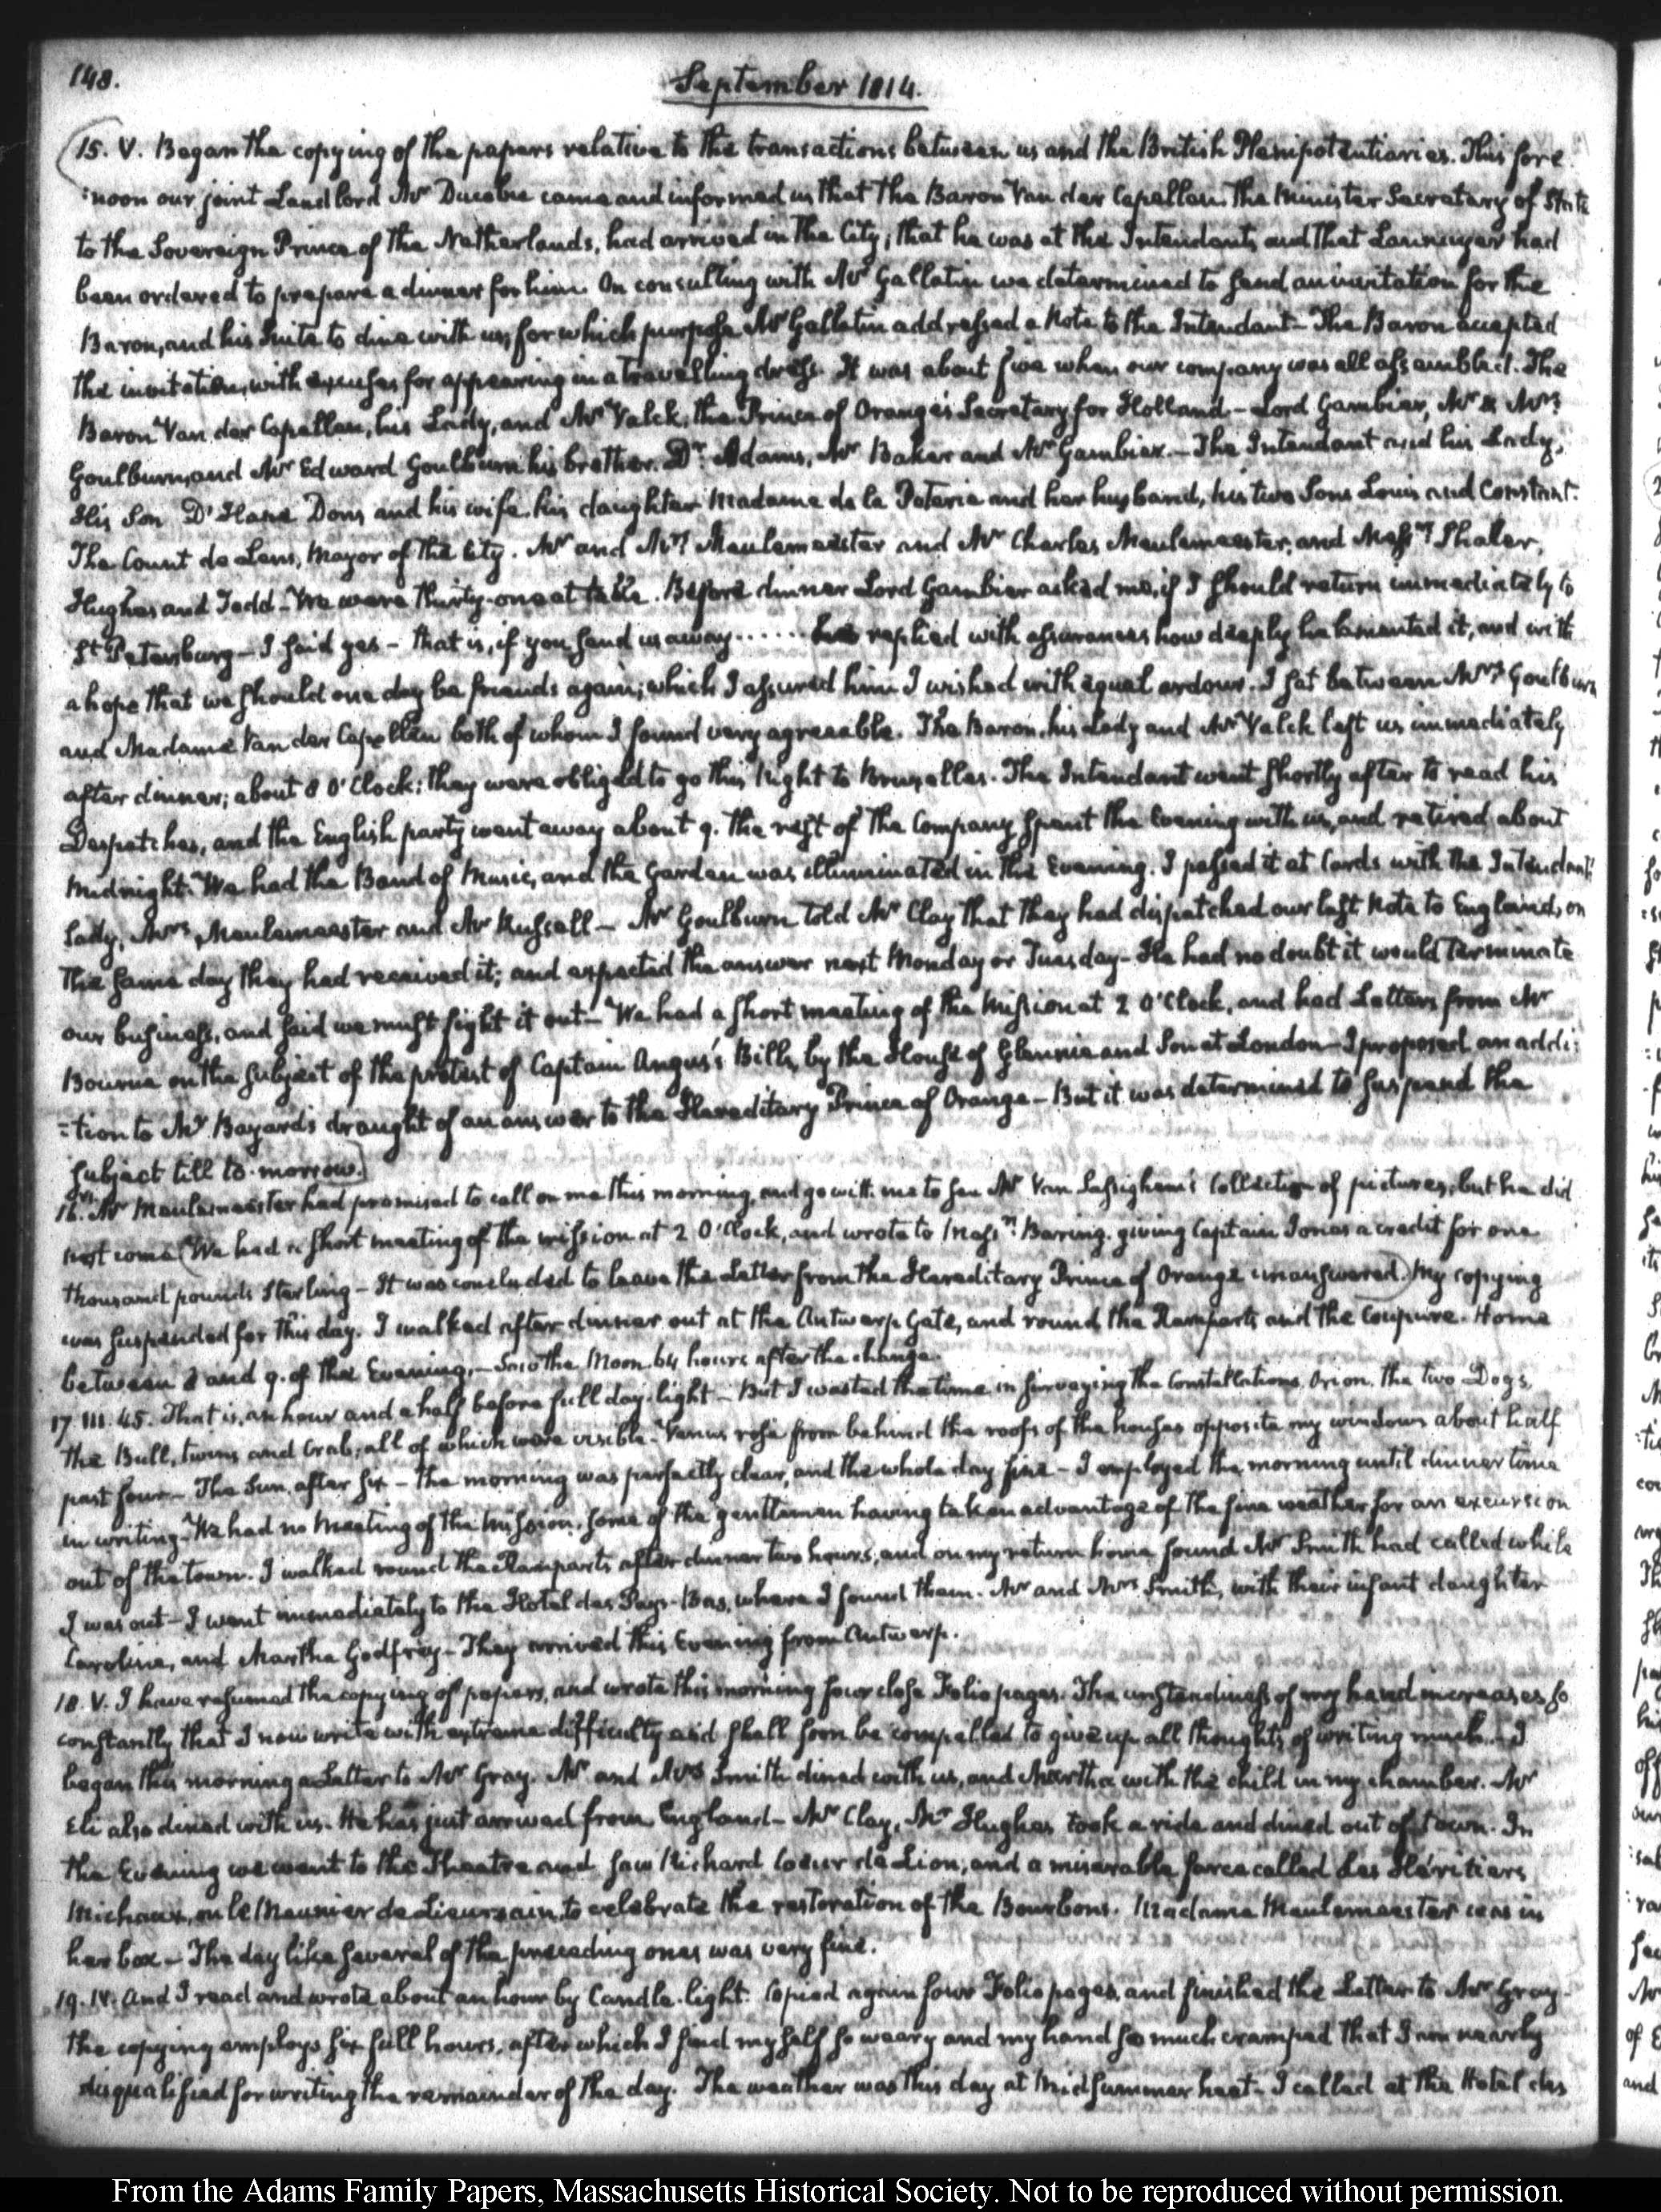 148.
September 1814.
15. V. Began the copying of the papers relative to the transactions between us and the British Plenipotentiaries. This fore
:noon our joint Landlord Mr Ducobie came and informed us that the Baron Van der Capellen the Minister Secretary of State
to the Sovereign Prince of the Netherlands, had arrived in the City; that he was at the Intendant's and that Lannuyer had
been ordered to prepare a dinner for him. On consulting with Mr Gallatin we determined to send an invitation for the
Baron, and his Suite to dine with us, for which purpose Mr Gallatin addressed a Note to the Intendant - The Baron accepted
the invitation, with excuses for appearing in a travelling dress. It was about five when our company was all assembled. The
Baron Van der Capellen, his Lady, and Mr Valck, the Prince of Orange's Secretary for Holland. - Lord Gambier, Mr & Mrs
Goulburn, and Mr Edward Goulburn his brother. Dr. Adams, Mr Baker and Mr Gambier. - The Intendant and his Lady,
His Son D'Hane Dons and his wife, his daughter Madame de la Poterie and her husband, his two Sons Louis and Constant.
The Count de Lens, Mayor of the City. Mr and Mrs Meulemeester and Mr Charles Meulemeester, and Messrs Shaler,
Hughes and Todd - We were thirty-one at table. Before dinner Lord Gambier asked me, if I should return immediately to
St Petersburg - I said yes - that is, if you send us away...... he replied with assurances how deeply he lamented it, and with
a hope that we should one day be friends again; which I assured him I wished with equal ardour. I sat between Mrs Goulburn
and Madame Van der Capellen both of whom I found very agreeable. The Baron, his Lady and Mr Valck left us immediately
after dinner; about 8 O'Clock: they were obliged to go this Night to Bruxelles. The Intendant went shortly after to read his
Despatches, and the English party went away about 9. The rest of the Company spent the Evening with us, and retired about
Midnight. We had the Band of Music, and the Garden was illuminated in the Evening. I passed it at Cards with the Intendant's
Lady, Mrs Meulemeester and Mr Russell - Mr Goulburn told Mr Clay that they had dispatched our last Note to England, on
the same day they had received it; and expected the answer next Monday or Tuesday - He had no doubt it would terminate
our business, and said we must fight it out - We had a short meeting of the Mission at 2 O'Clock, and had Letters from Mr
Bourne on the subject of the protest of Captain Angus's Bills, by the House of Glennie and Son at London - I proposed an addi:
:tion to Mr Bayard's draught of an answer to the Hereditary Prince of Orange - But it was determined to suspend the
subject till to-morrow.
16. VI. Mr Meulemeester had promised to call on me this morning, and go with me to see Mr Van Sassighem's Collection of pictures, but he did
not come (We had a short meeting of the mission at 2 O'Clock, and wrote to Messrs Baring, giving Captain Jones a credit for one
thousand pounds Sterling - It was concluded to leave the Letter from the Hereditary Prince of Orange unanswered.) My copying
was suspended for this day. I walked after dinner out at the Antwerp Gate, and round the Ramparts and the Coupure. Home
between 8 and 9. of the Evening. - Saw the Moon 64 hours after the change.
17. III. 45. That is, an hour and a half before full day-light - But I wasted the time in surveying the Constellations, Orion, the two Dogs,
the Bull, twins and Crab, all of which were visible - Venus rose from behind the roofs of the houses opposite my windows about half
past four - The Sun, after six - The morning was perfectly clear, and the whole day fine - I employed the morning until dinner time
in writing - We had no Meeting of the Mission, some of the gentlemen having taken advantage of the fine weather for an excursion
out of the town. I walked round the Ramparts after dinner two hours, and on my return home found Mr Smith had called while
I was out - I went immediately to the Hotel des Pays-Bas, where I found them. Mr and Mrs Smith, with their infant daughter
Caroline, and Martha Godfrey - They arrived this Evening from Antwerp.
18. V. I have resumed the copying of papers, and wrote this morning four close Folio pages. The unsteadiness of my hand increases so
constantly that I now write with extreme difficulty and shall soon be compelled to give up all thoughts of writing much. - I
began this morning a Letter to Mr Gray. Mr and Mrs Smith dined with us, and Martha with the child in my chamber. Mr
Eli also dined with us. He has just arrived from England - Mr Clay, Mr Hughes took a ride and dined out of town. In
the Evening we went to the Theatre and saw Richard Coeur de Lion, and a miserable farce called Les Héritiers
Michaux, ou le Meunier de Lieursain, to celebrate the restoration of the Bourbons. Madame Meulemeester was in
her box - The day like several of the preceding ones was very fine.
19. IV. And I read and wrote about an hour by Candle-light. Copied again four Folio pages, and finished the Letter to Mr Gray -
the copying employs six full hours, after which I find myself so weary and my hand so much cramped that I am nearly
disqualified for writing the remainder of the day. The weather was this day at Midsummer heat - I called at the Hotel des
From the Adams Family Papers, Massachusetts Historical Society. Not to be reproduced without permission.